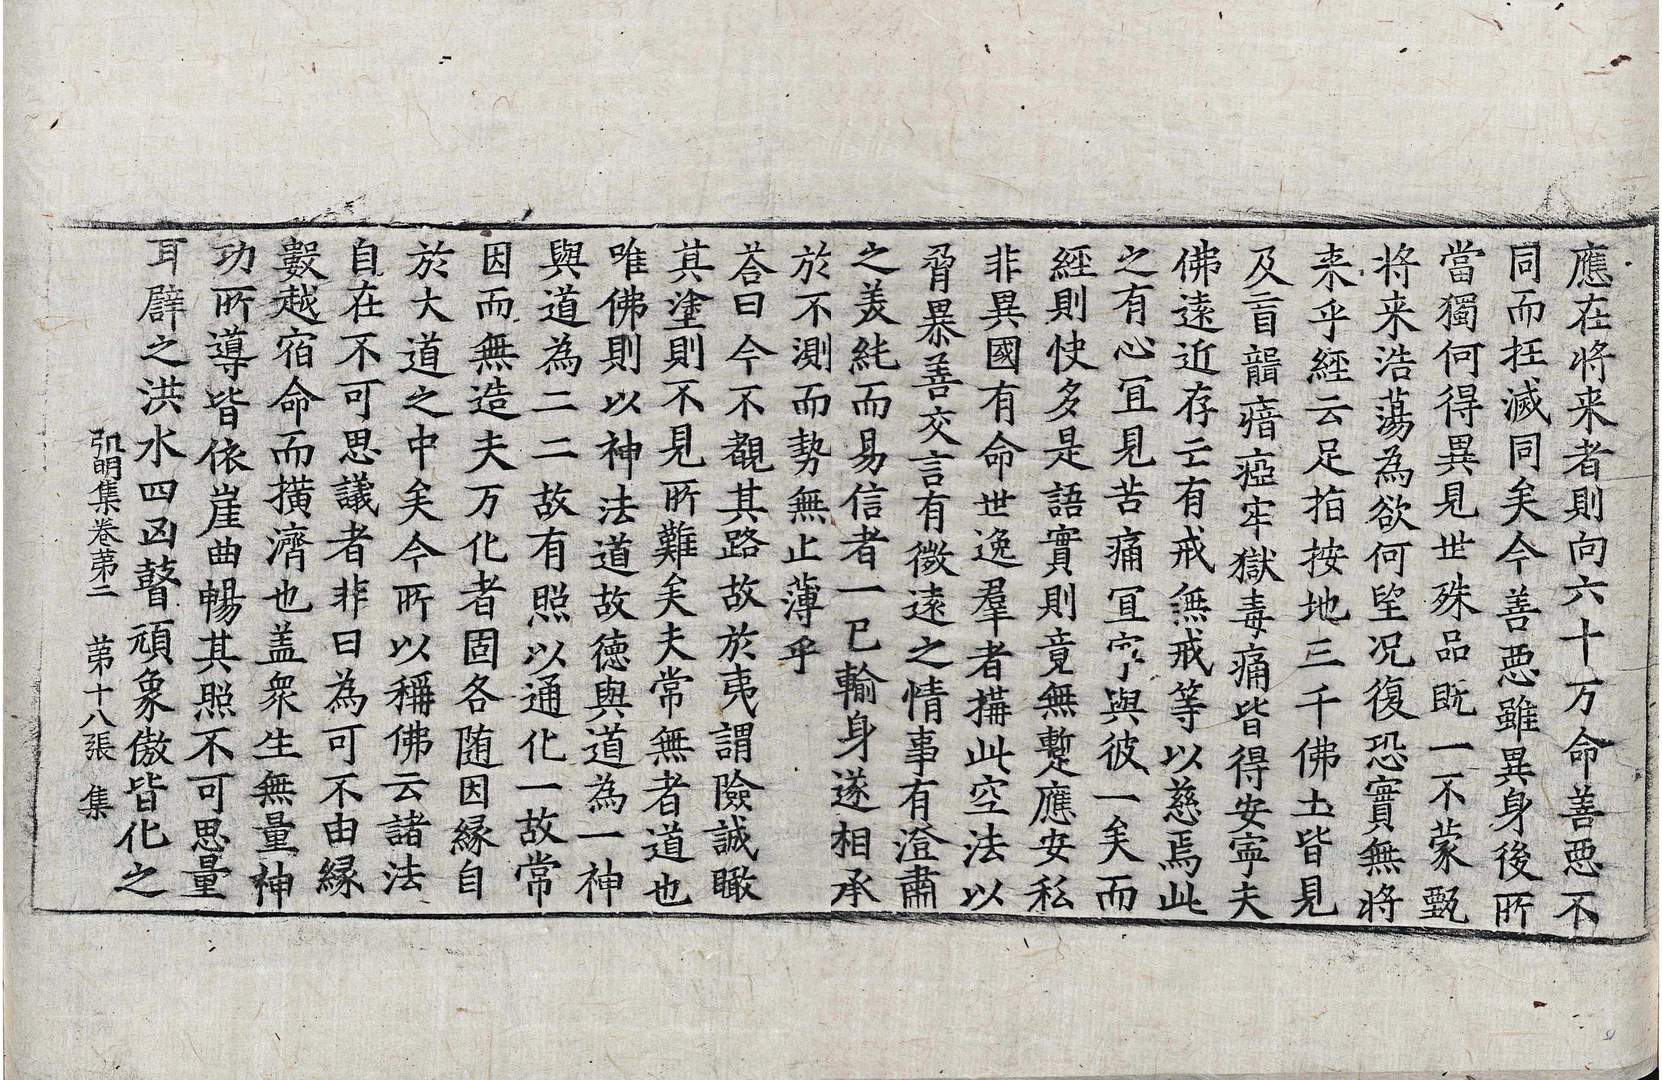 應在将来者則向六十万命善惡不
同而抂滅同矣今善惡雖異身後所
當獨何得異見世殊品既一不蒙甄
将来浩蕩為欲何望况復恐實無将
来乎經云足指按地三千佛土皆見
及盲聾瘖瘂牢獄毒痛皆得安寕夫
佛遠近存亡有戒無戒等以慈焉此
之有心冝見苦痛冝寕與彼一矣而
經則快多是語實則竟無蹔應安私
非異國有命世逸羣者搆此空法以
脅暴善交言有微遠之情事有澄肅
之美純而易信者一已輸身遂相承
於不測而勢無止薄乎
荅曰今不覩其路故於夷謂險誠瞰
其塗則不見所難矣夫常無者道也
唯佛則以神法道故德與道為一神
與道為二二故有照以通化一故常
因而無造夫万化者固各随因縁自
於大道之中矣今所以稱佛云諸法
自在不可思議者非曰為可不由縁
數越宿命而撗濟也盖衆生無量神
功所導皆依崖曲暢其照不可思量
耳譬之洪水四凶瞽頑象傲皆化之
弘明集卷苐二　苐十八張　集